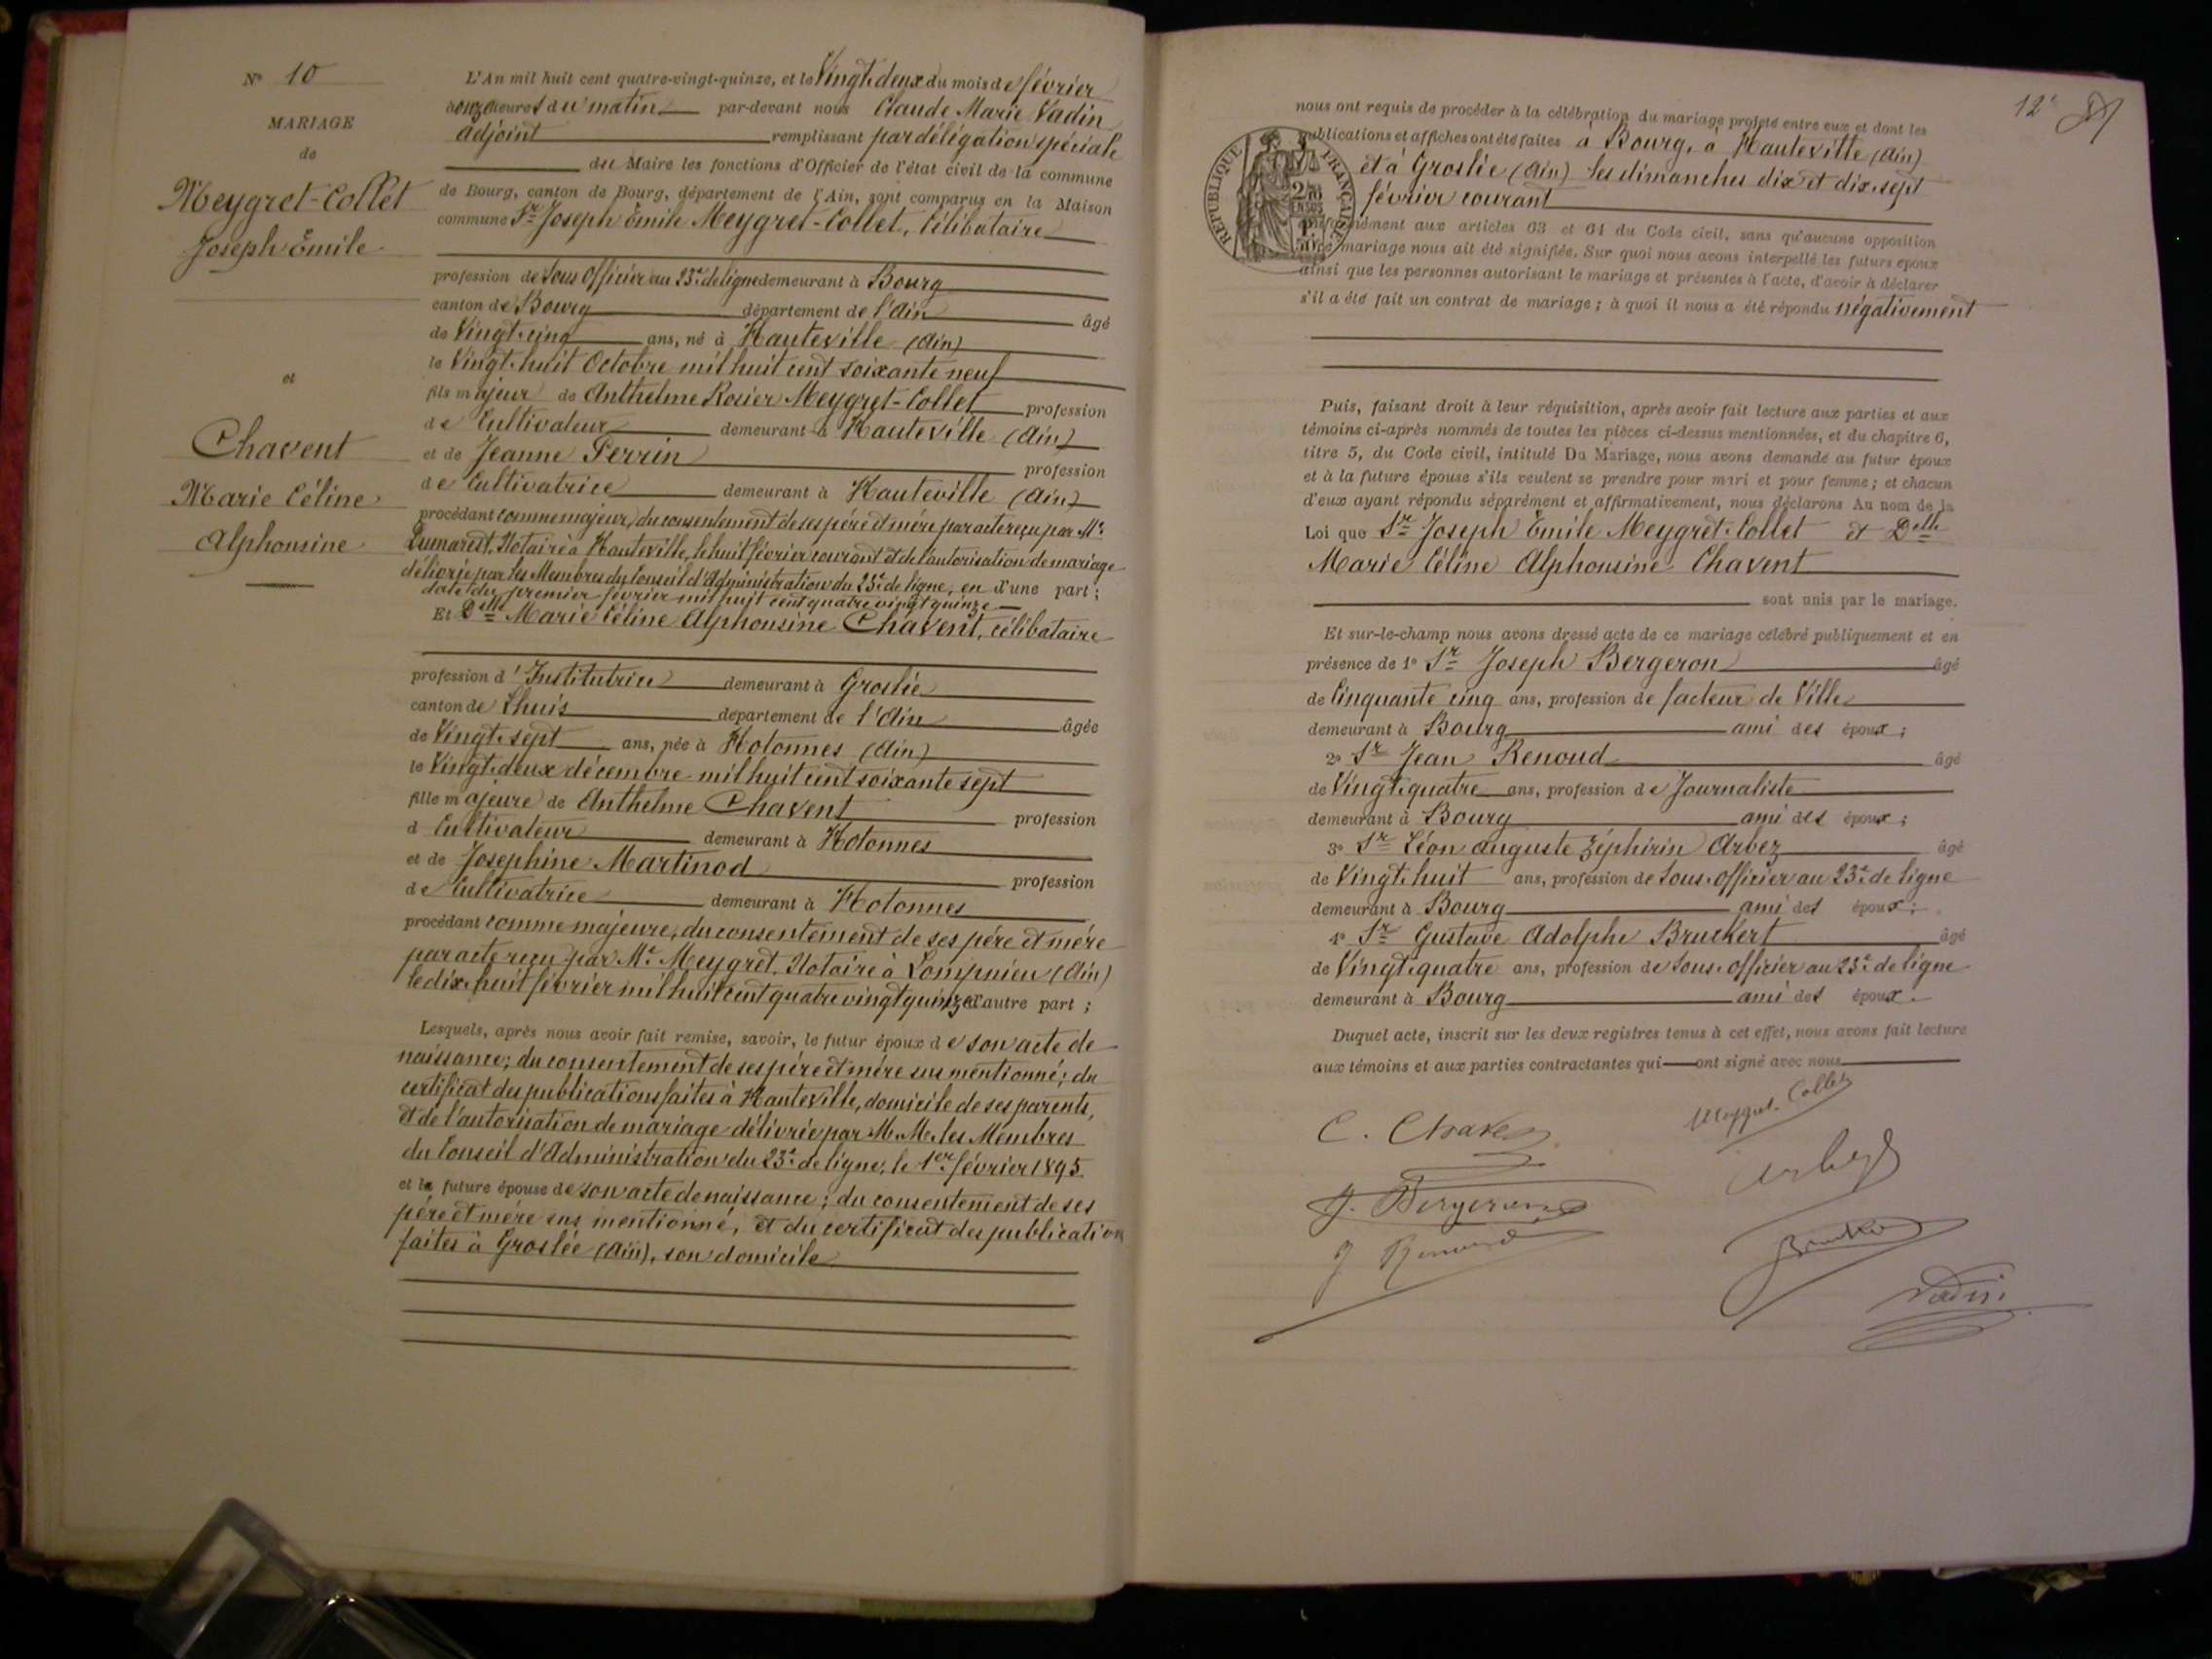 N° 10
MARIAGE
de
Meygret-Collet
Joseph Emile
et
Chavent
Marie Céline
Alphonsine
L'An mil huit cent quatre-vingt-quinze, et le Vingt deux du mois de février
à onze heures du matin par-devant nous Claude Marie Vadin
adjoint remplissant par délégation spéciale
du Maire les fonctions d'Officier de l'état civil de la commune
de Bourg, canton de Bourg, département de l'Ain, sont comparus en la Maison
commune Sr Joseph Emile Meygret-Collet, Célibataire
profession de Sous Officier au 23e de ligne demeurant à Bourg
canton de Bourg département de l'Ain âgé
de Vingt cinq ans, né à Hauteville (Ain)
le Vingt huit Octobre mil huit cent soixante neuf
fils majeur de Anthelme Rosier Meygret-Collet profession
de Cultivateur demeurant à Hauteville (Ain)
et de Jeanne Perrin profession
de Cultivatrice demeurant à Hauteville (Ain)
procédant comme majeur, du consentement de ses père et mère par acte reçu par Me
Dumarest, Notaire à Hauteville, le huit février courant et de l'autorisation de mariage
délivrée par les Membres du Conseil d'Administration du 23e de ligne, en d'une part ;
date du premier février mil huit cent quatre vingt quinze
Et Delle Marie Céline Alphonsine Chavent, célibataire
profession d'Institutrice demeurant à Groslée
canton de Lhuis département de l'Ain âgée
de Vingt sept ans, née à Hotonnes (Ain)
le Vingt deux décembre mil huit cent soixante sept
fille majeure de Anthelme Chavent profession
d Cultivateur demeurant à Hotonnes
et de Josephine Martinod profession
de Cultivatrice demeurant à Hotonnes
procédant comme majeure, du consentement de ses père et mère
par acte reçu par Me Meygret, Notaire à Lompnieu (Ain)
le dix huit février mil huit cent quatre vingt quinze d'autre part ;
Lesquels, après nous avoir fait remise, savoir, le futur époux de son acte de
naissance ; du consentement de ses père et mère sus mentionné ; du
certificat des publications faites à Hauteville, domicile de ses parents,
et de l'autorisation de mariage délivrée par M.M. les Membres
du Conseil d'Administration du 23e de ligne, le 1er février 1895
et la future épouse de son acte de naissance ; du consentement de ses
père et mère sus mentionné, et du certificat des publications
faites à Groslée (Ain), son domicile
12e
nous ont requis de procéder à la célébration du mariage projeté entre eux et dont les
publications et affiches ont été faites à Bourg, à Hauteville (Ain)
et à Groslée (Ain) les dimanches dix et dix sept
février courant
RÉPUBLIQUE FRANÇAISE
conformément aux articles 63 et 64 du Code civil, sans qu'aucune opposition
à ce mariage nous ait été signifiée. Sur quoi nous avons interpellé les futurs époux
ainsi que les personnes autorisant le mariage et présentes à l'acte, d'avoir à déclarer
s'il a été fait un contrat de mariage ; à quoi il nous a été répondu négativement
Puis, faisant droit à leur réquisition, après avoir fait lecture aux parties et aux
témoins ci-après nommés de toutes les pièces ci-dessus mentionnées, et du chapitre 6,
titre 5, du Code civil, intitulé Du Mariage, nous avons demandé au futur époux
et à la future épouse s'ils veulent se prendre pour mari et pour femme ; et chacun
d'eux ayant répondu séparément et affirmativement, nous déclarons Au nom de la
Loi que Sr Joseph Emile Meygret-Collet et Delle
Marie Céline Alphonsine Chavent
sont unis par le mariage.
Et sur-le-champ nous avons dressé acte de ce mariage célébré publiquement et en
présence de 1° Sr Joseph Bergeron âgé
de Cinquante cinq ans, profession de facteur de Ville
demeurant à Bourg ami des époux ;
2° Sr Jean Renoud âgé
de Vingt quatre ans, profession de Journaliste
demeurant à Bourg ami des époux ;
3° Sr Léon Auguste Zéphirin Arbez âgé
de Vingt huit ans, profession de Sous Officier au 23e de ligne
demeurant à Bourg ami des époux ;
4° Sr Gustave Adolphe Bruckert âgé
de Vingt quatre ans, profession de Sous Officier au 23e de ligne
demeurant à Bourg ami des époux.
Duquel acte, inscrit sur les deux registres tenus à cet effet, nous avons fait lecture
aux témoins et aux parties contractantes qui ont signé avec nous
C. Chavent
Meygret-Collet
Arbez
J. Bergeron
J Renoud
Bruckert
Vadin